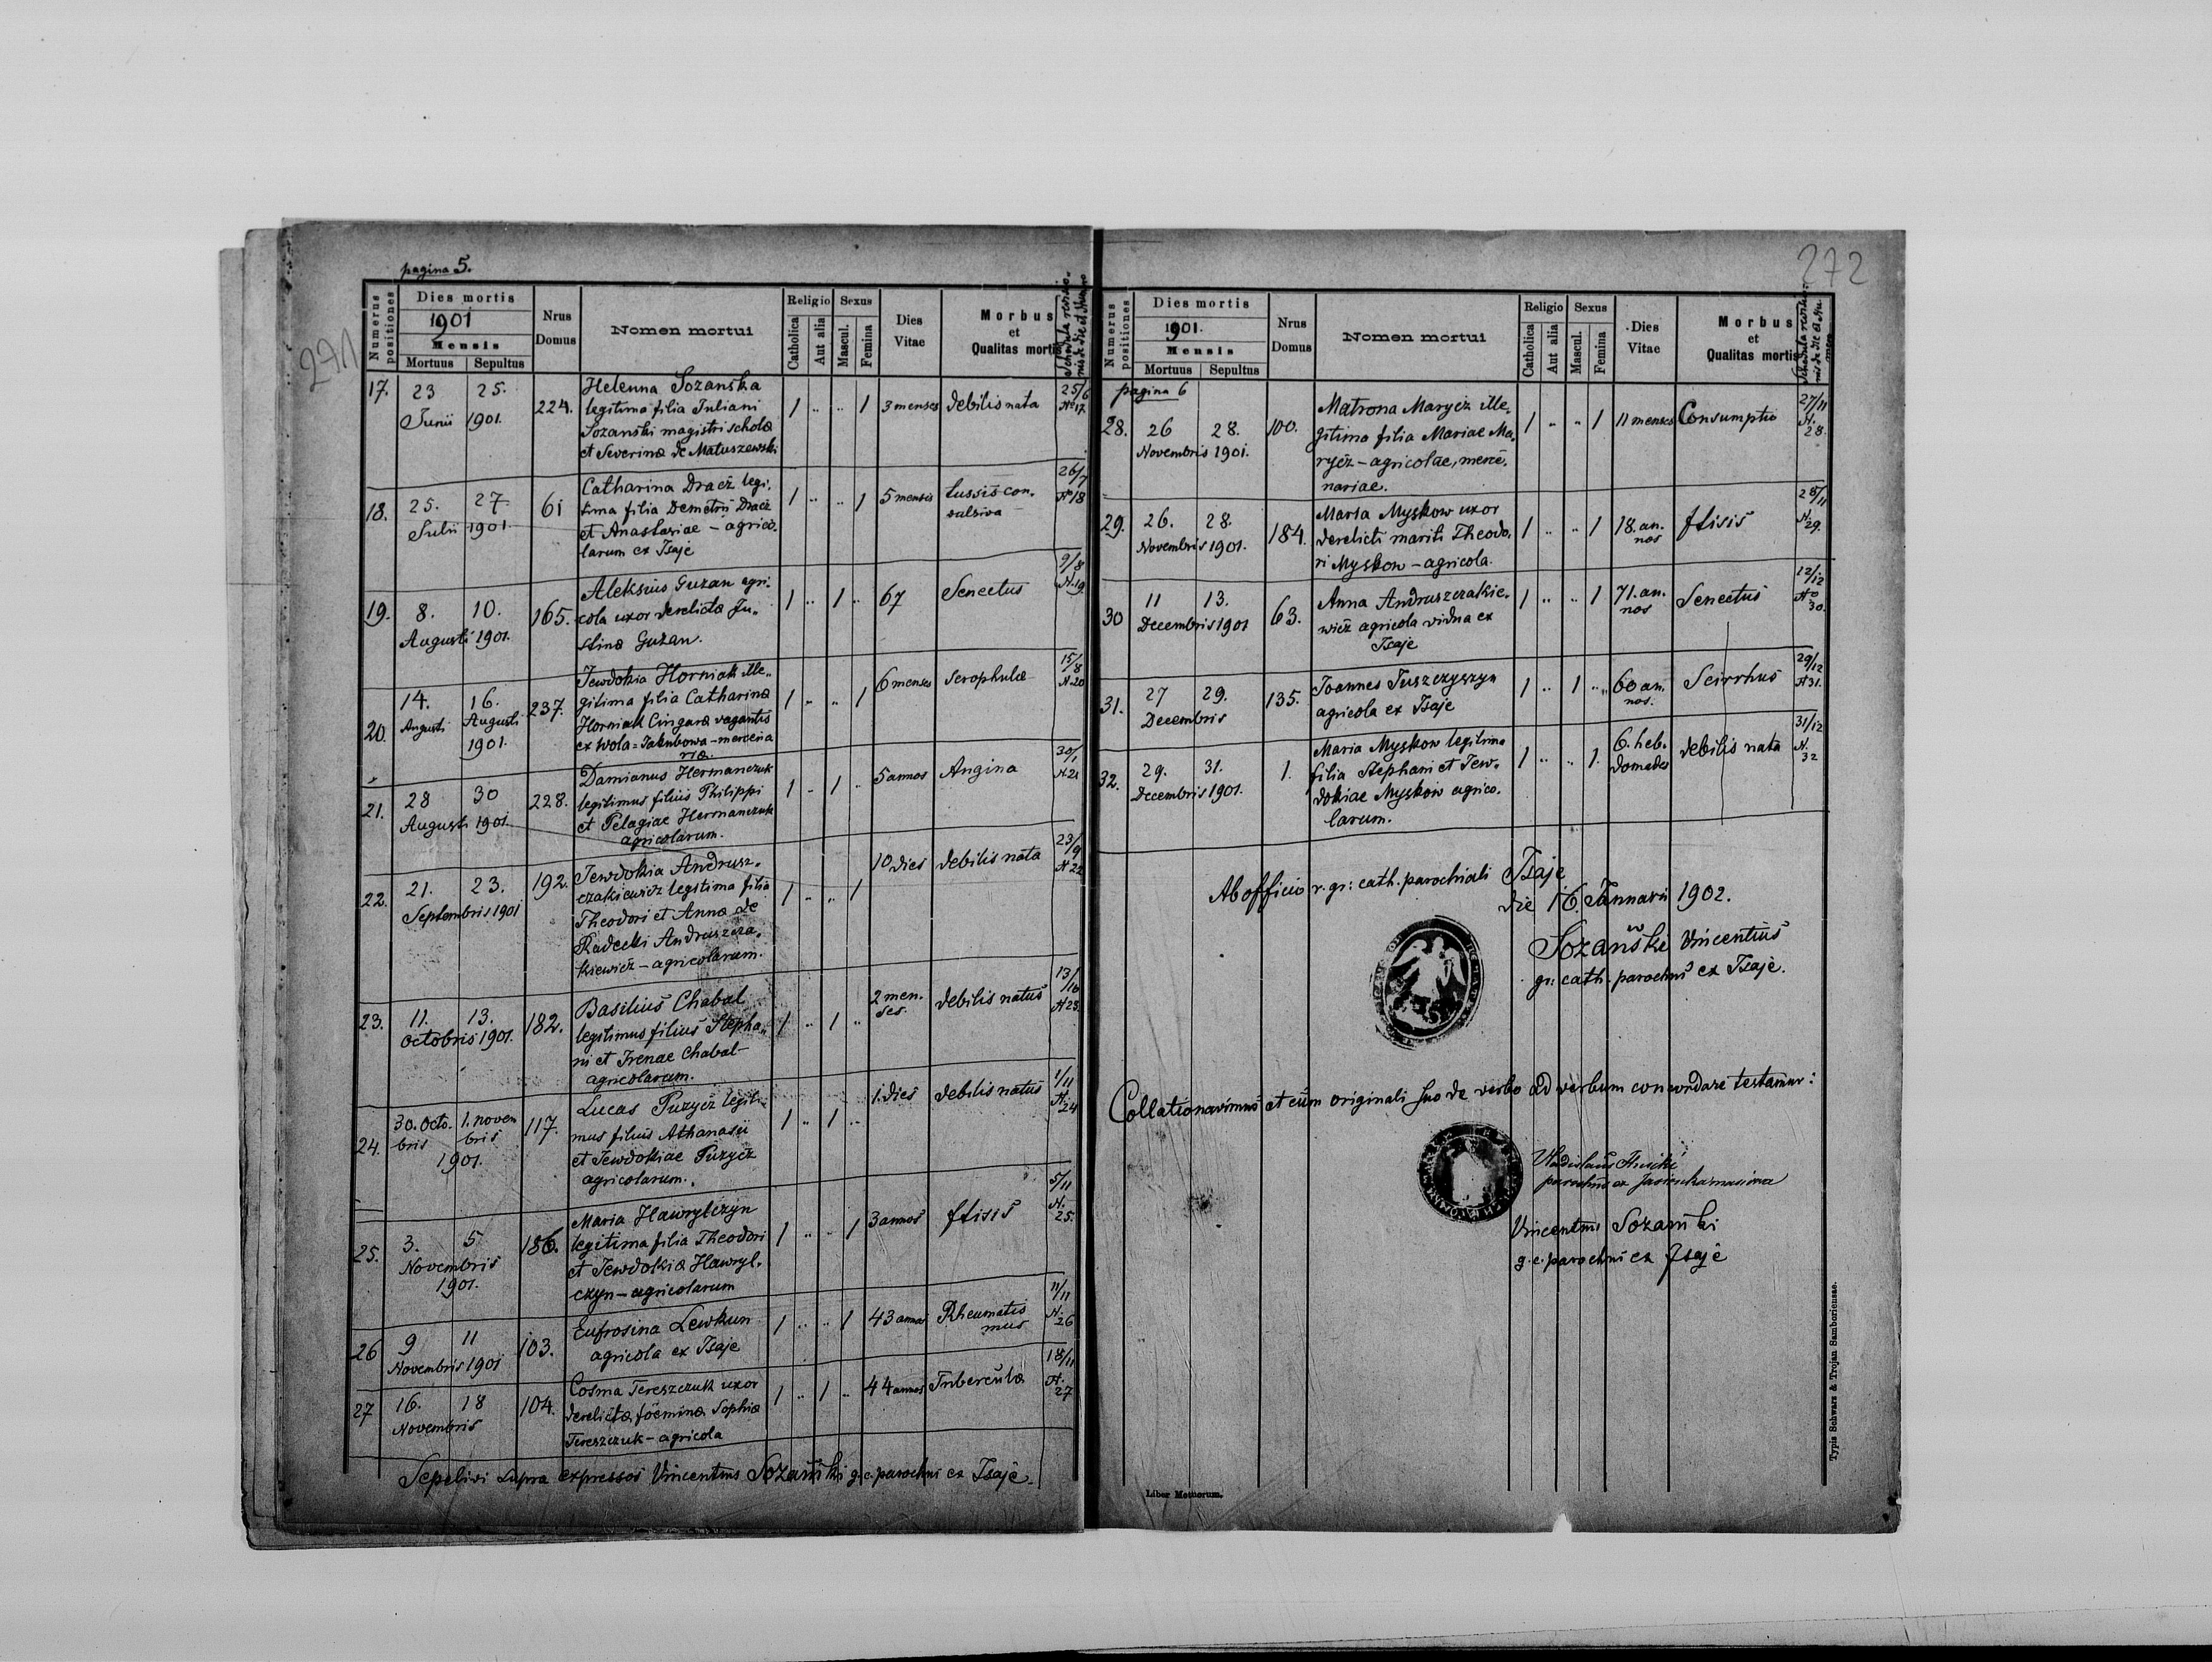 pagina 5.
271
Numerus positiones
Dies mortis
1901
Mensis
Mortuus Sepultus
Nrus Domus
Nomen mortui
Religio
Catholica
Aut alia
Sexus
Mascul.
Femina
Dies Vitae
Morbus
et
Qualitas mortis
17. 23 25. 224. Helenna Sozańska 1 .. .. 1 3 menses debilis nata 25/6
Junii 1901. legitima filia Juliani No 17.
Sozański magistri schola
et Severina de Matuszewski
18. 25. 27 61 Catharina Dracz legi- 1 .. .. 1 5 menses tussis con- 26/7
Julii 1901. tima filia Demetrii Dracz vulsiva No 18
et Anastasiae - agrico-
larum ex Isaje
19. 8. 10. 165. Aleksius Guzan agri- 1 .. 1 .. 67 Senectus 9/8
Augusti 1901. cola uxor derelicta Ju- N. 19
stina Guzan.
20. 14. 16. 237. Jewdokia Horniak ille- 1 .. .. 1 6 menses Scrophula 15/8
Augusti Augusti gitima filia Catharina N 20
1901. Horniak Cingara vagantis
ex Wola=Jakubowa - mercena
ria.
21. 28 30 228. Damianus Hermanczuk 1 .. 1 .. 5 annos Angina
Augusti 1901. legitimus filius Philippi N. 21
et Pelagiae Hermanczuk
agricolarum.
22. 21. 23. 192. Jewdokia Andrusz- 1 .. .. 1 10 dies debilis nata 23/9
Septembris 1901 czakiewicz legitima filia N 22
Theodori et Anna de
Radecki Andruszcza-
kiewicz - agricolarum.
23. 11. 13. 182. Basilius Chabal 1 .. 1 .. 2 men- debilis natus 13/10
Octobris 1901. legitimus filius Stepha- ses. N 23.
ni et Irenae Chabal -
agricolarum.
24. 30. Octo- 1. novem 117. Lucas Puzycz legiti- 1 .. 1 .. 1. dies debilis natus 1/11
bris bris mus filius Athanasii N. 24
1901. et Jewdokiae Puzycz
agricolarum.
25. 3. 5 186. Maria Hawrylczyn 1 .. .. 1 3 annos ftisis 5/11
Novembris legitima filia Theodori N. 25.
1901. et Jewdokia Hawryl-
czyn - agricolarum
26 9 11 103. Eufrosina Lewkun 1 .. .. 1 43 annos Rheumatis 11/11
Novembris 1901 agricola ex Isaje mus N. 26
27 16. 18 104. Cosma Tereszczuk uxor 1 .. 1 .. 44 annos Tubercula 18/11
Novembris derelicta foemina Sophia N. 27
Tereszczuk - agricola
Sepelivi supra expressos Vincentius Sozański g. c. parochus ex Isaje.
272
Numerus positiones
Dies mortis
1901.
Mensis
Mortuus Sepultus
Nrus Domus
Nomen mortui
Religio
Catholica
Aut alia
Sexus
Mascul.
Femina
Dies Vitae
Morbus
et
Qualitas mortis
pagina 6
28. 26 28. 100. Matrona Marycz ille- 1 .. .. 1 11 menses Consumptio 27/11
Novembris 1901. gitima filia Mariae Ma- N. 28.
rycz - agricolae, merce-
nariae.
29. 26. 28. 184. Maria Myskow uxor 1 .. .. 1 18. an- ftisis 28/11
Novembris 1901. derelicti mariti Theodo- nos N. 29.
ri Myskow - agricola.
30 11 13. 63. Anna Andruszczakie- 1 .. .. 1 71. an- Senectus 12/12
Decembris 1901 wicz agricola vidua ex nos No 30.
Isaje
31. 27 29. 135. Joannes Tuszczyszyn 1 .. 1 .. 60 an- Scirrhus 29/12
Decembris agricola ex Isaje nos. N 31.
32. 29. 31. 1. Maria Myskow legitima 1 .. .. 1. 6. heb- debilis nata 31/12
Decembris 1901. filia Stephani et Jew- domades N. 32
dokiae Myskow agrico-
larum.
Ab officio r. gr: cath. parochiali Isaje
die 16. Januarii 1902.
Sozański Vincentius
gr: cath. parochus ex Isaje.
Collationavimus et cum originali suo de verbo ad verbum concordare testamur:
Vladislaus
parochus ex Jasionka masiowa
Vincentius Sozański
g. c. parochus ex Isaje
Liber Mortuorum.
Typis Schwarz & Trojan Samboriensae.